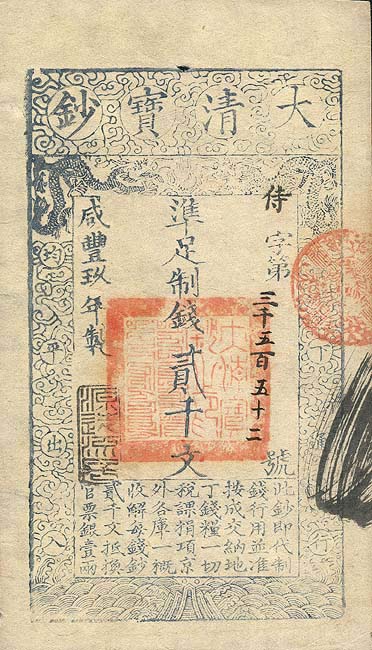 大清寶鈔
侍字第三千五百五十二號
準足制錢貳千文
咸豐玖年製
下
行
均平出入
此鈔即代制
錢行用並准
按成交納地
丁錢糧一切
稅課捐項京
外各庫一概
收解每錢鈔
貳千文抵換
官票銀壹兩